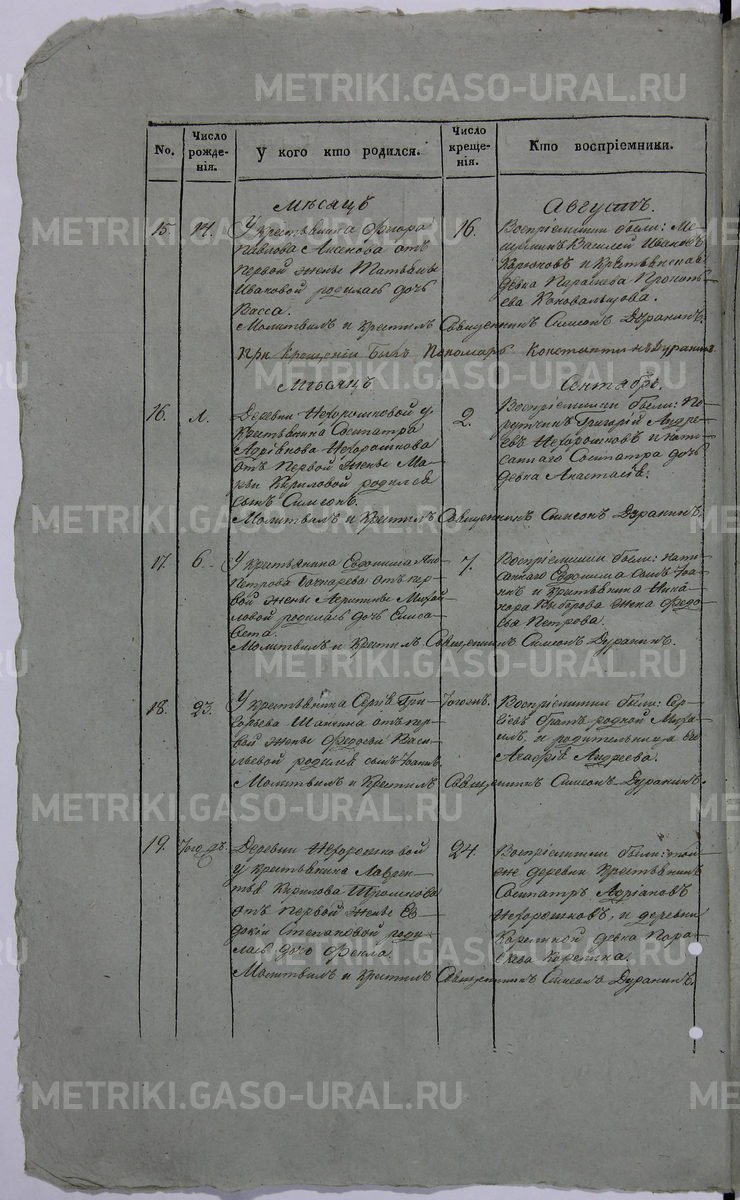 METRIKI.GASO-URAL.RU
No.
Число рожденія.
У кого кто родился.
Число крещенія.
Кто воспріемники.
Мѣсяцъ
Августъ.
15.
14.
У крестьянина
Павлова Аксенова отъ
первой жены Татьяны
Ивановой родилась дочь
Васса.
16.
Воспріемники были:
Василій Ивановъ
и крестьянская
девка Параскева Прокопь-
ева Коновальцова.
Молитвилъ и крестилъ Священникъ Симеонъ Дуракинъ.
При крещеніи былъ Пономарь Константинъ Дуракинъ
Мѣсяцъ
Сентябрь.
16.
Деревни Нехорошковой у
крестьянина Сосипатра
Адріанова Нехорошкова
отъ первой жены Ма-
Кириловой родился
сынъ Симеонъ.
2.
Воспріемники были: По-
Григорій Андре-
евъ Нехорошковъ и напи-
саннаго Сосипатра дочь
девка Анастасія.
Молитвилъ и крестилъ Священникъ Симеонъ Дуракинъ.
17.
6.
У крестьянина Евдокима
Петрова отъ пер-
вой жены Михай-
ловой родилась дочь Елиса-
вета.
7.
Воспріемники были: напи-
саннаго Евдокима сынъ Іоан-
нъ и крестьянина Ника-
нора жена Федо-
сья Петрова.
Молитвилъ и крестилъ Священникъ Симеонъ Дуракинъ.
18.
23.
У крестьянина Сергія Гри-
горьева отъ пер-
вой жены Федосьи Васи-
льевой родился сынъ Іоаннъ.
Воспріемники были: Сер-
гіевъ братъ родной
и родительница его
Андреева.
Молитвилъ и крестилъ Священникъ Симеонъ Дуракинъ.
19.
Деревни Нехорошковой
у крестьянина Лаврен-
тія Кирилова
отъ первой жены Ев-
докіи Степановой роди-
лась дочь Фекла.
24.
Воспріемники были: той
же деревни крестьянинъ
Сосипатръ Адріановъ
Нехорошковъ, и деревни
Карелиной девка Пара-
скева Карелина.
Молитвилъ и крестилъ Священникъ Симеонъ Дуракинъ.
METRIKI.GASO-URAL.RU